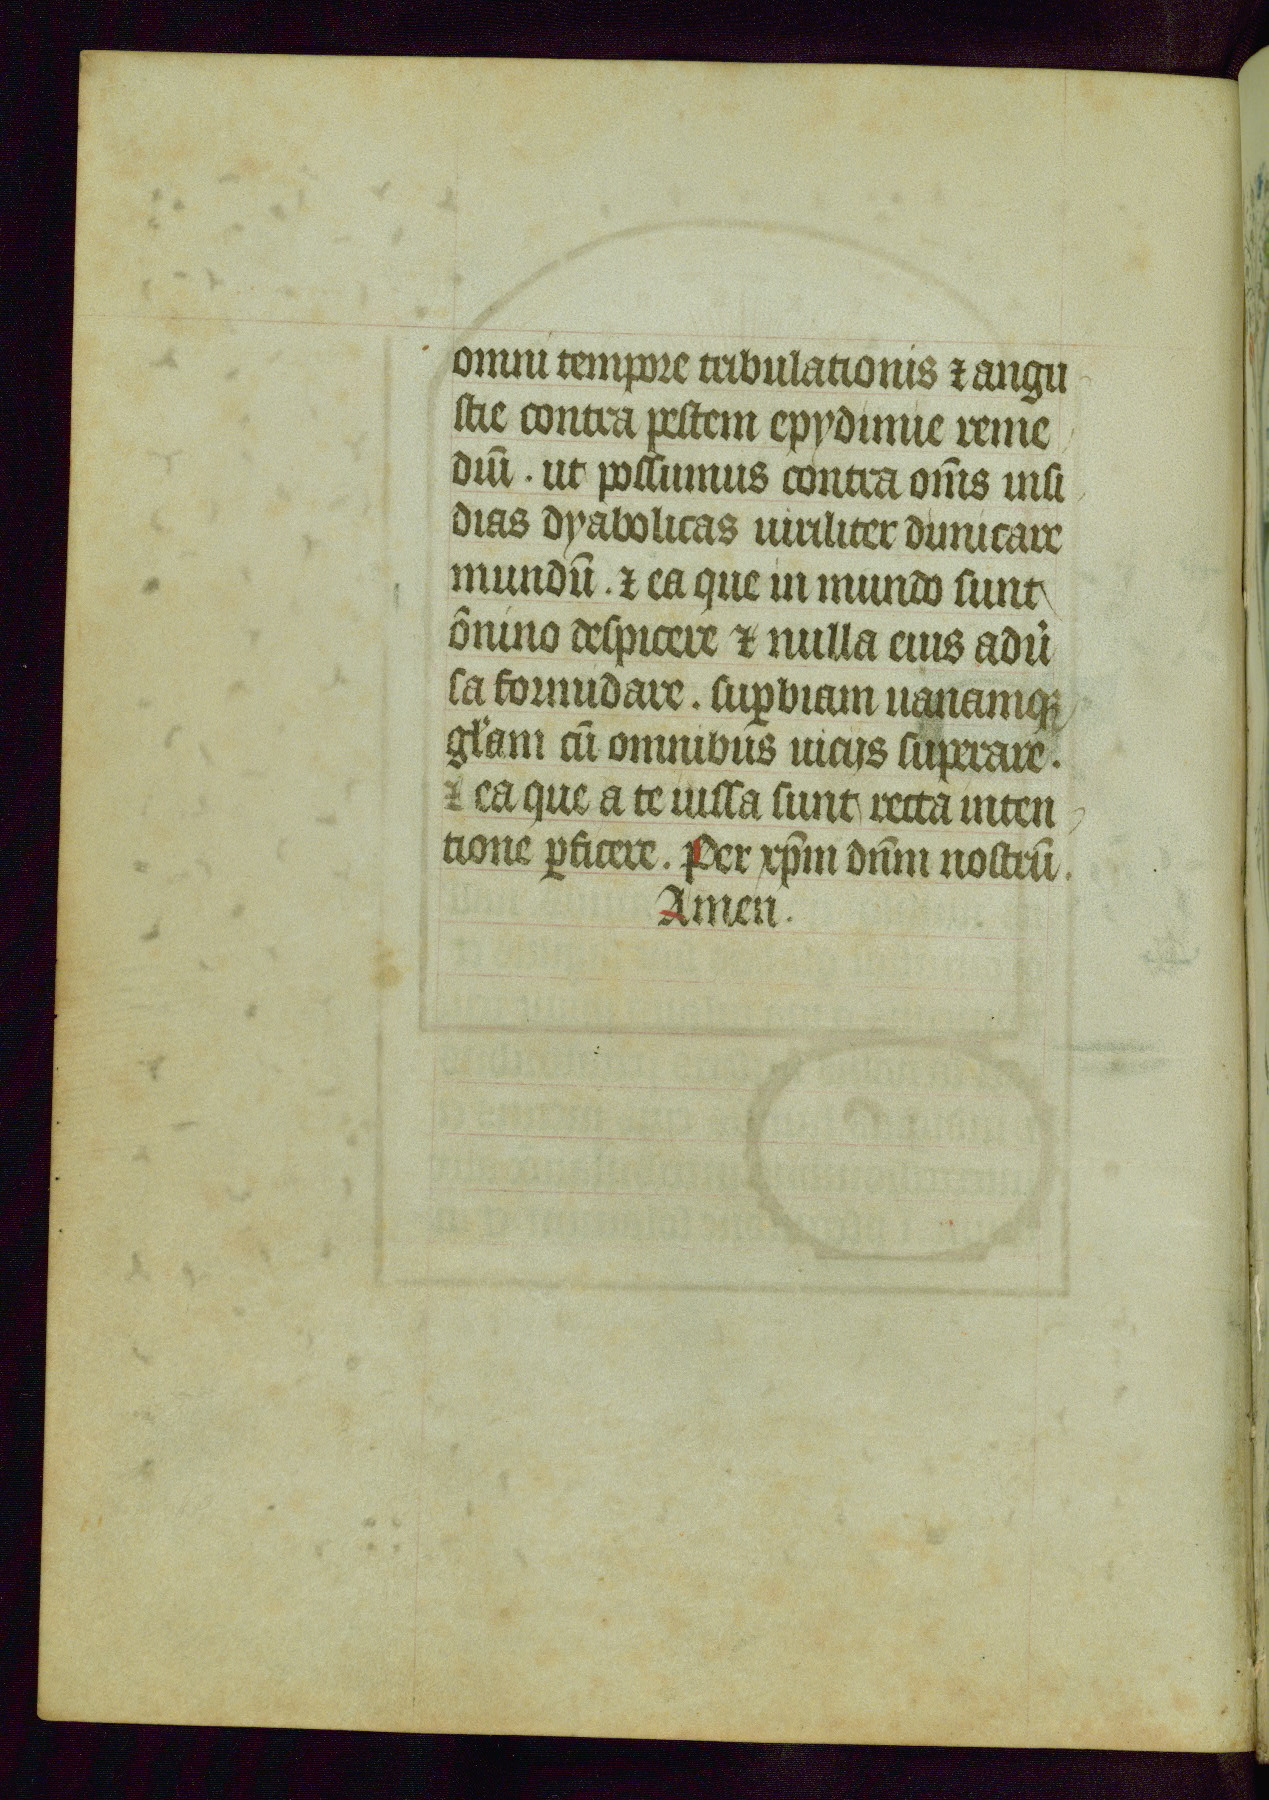 omni tempore tribulationis ⁊ angu
stie contra pestem epydimie reme
diū . ut possumus contra om̄s insi
dias dyabolicas uiriliter dimicare
mundū . ⁊ ea que in mundo sunt
ōnino despicere ⁊ nulla eius adu̾
sa formidare . suꝑbiam uanamqꝫ
gl̓am cū omnibus uicijs superare .
⁊ ea que a te iussa sunt recta inten
tione ꝑficere . Per xp̄m dn̄m nostrū .
Amen .